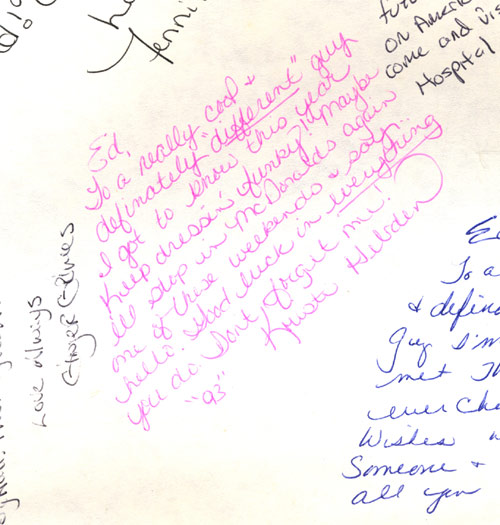 Jenni
futu
on Americ
come and vis
Hospital
Ed,
To a really cool &
definately "different" guy
I got to know this year
Keep dressin' funky! Maybe
I'll stop in McDonalds again
one of these weekends & say
hello. Good luck in everything
you do. Dont forget me!
"93" Kristi
Love Always
Ginger
To a
& defina
Guy I'm
met Th
ever cha
Wishes w
Someone &
all you